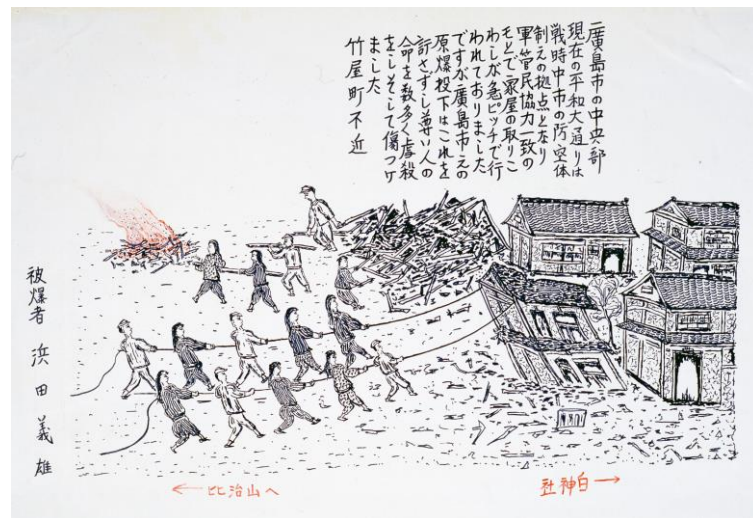 廣島市の中央部
現在の平和大通りは
戦時中市の防空体
制えの拠点となり
軍管民協力一致の
モとで家屋の取りこ
わしが急ピッチで行
われておりました
ですが廣島市えの
原爆投下はこれを
許さずし尊い人の
命を数多く虐殺
をしそして傷つけ
ました
竹屋町不近
被爆者 浜田義雄
←比治山へ
社神白→